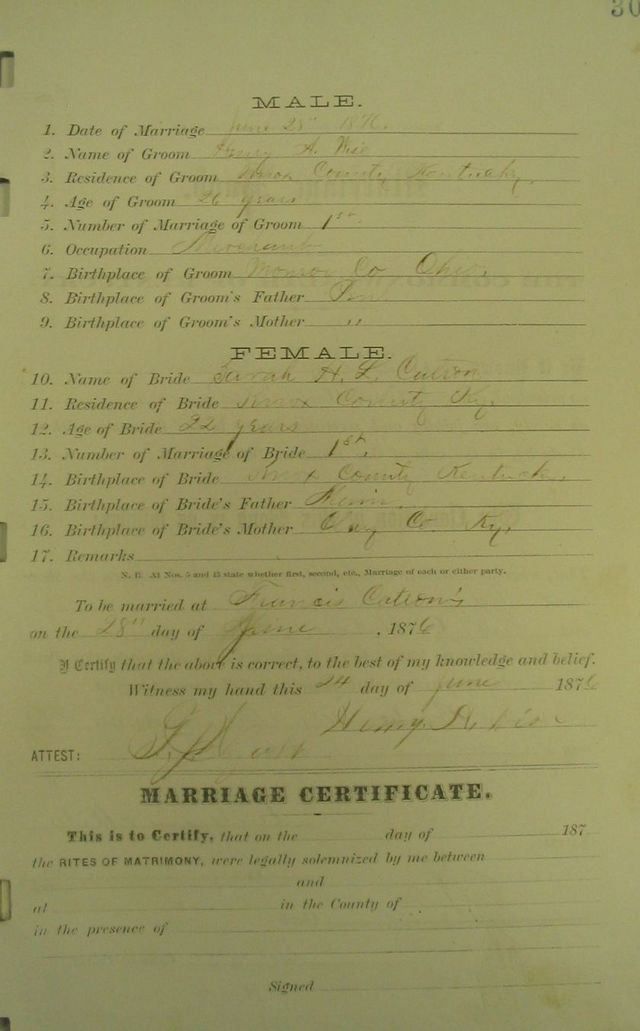 30
MALE.
1. Date of Marriage June 28" 1876.
2. Name of Groom Henry A.
3. Residence of Groom Knox County Kentucky.
4. Age of Groom 26 years
5. Number of Marriage of Groom 1st.
6. Occupation
7. Birthplace of Groom Monroe Co Ohio.
8. Birthplace of Groom's Father
9. Birthplace of Groom's Mother "
FEMALE.
10. Name of Bride Sarah H. L. Catron
11. Residence of Bride Knox County Ky.
12. Age of Bride 22 years
13. Number of Marriage of Bride 1st.
14. Birthplace of Bride Knox County Kentucky.
15. Birthplace of Bride's Father
16. Birthplace of Bride's Mother Clay Co. Ky.
17. Remarks
N. B. At Nos. 5 and 13 state whether first, second, etc., Marriage of each or either party.
To be married at Francis Catron's
on the 28" day of June , 1876
I Certify that the above is correct, to the best of my knowledge and belief.
Witness my hand this 24 day of June 1876
Henry A.
ATTEST:
MARRIAGE CERTIFICATE.
This is to Certify, that on the day of 187
the RITES OF MATRIMONY, were legally solemnized by me between
and
at in the County of
in the presence of
Signed